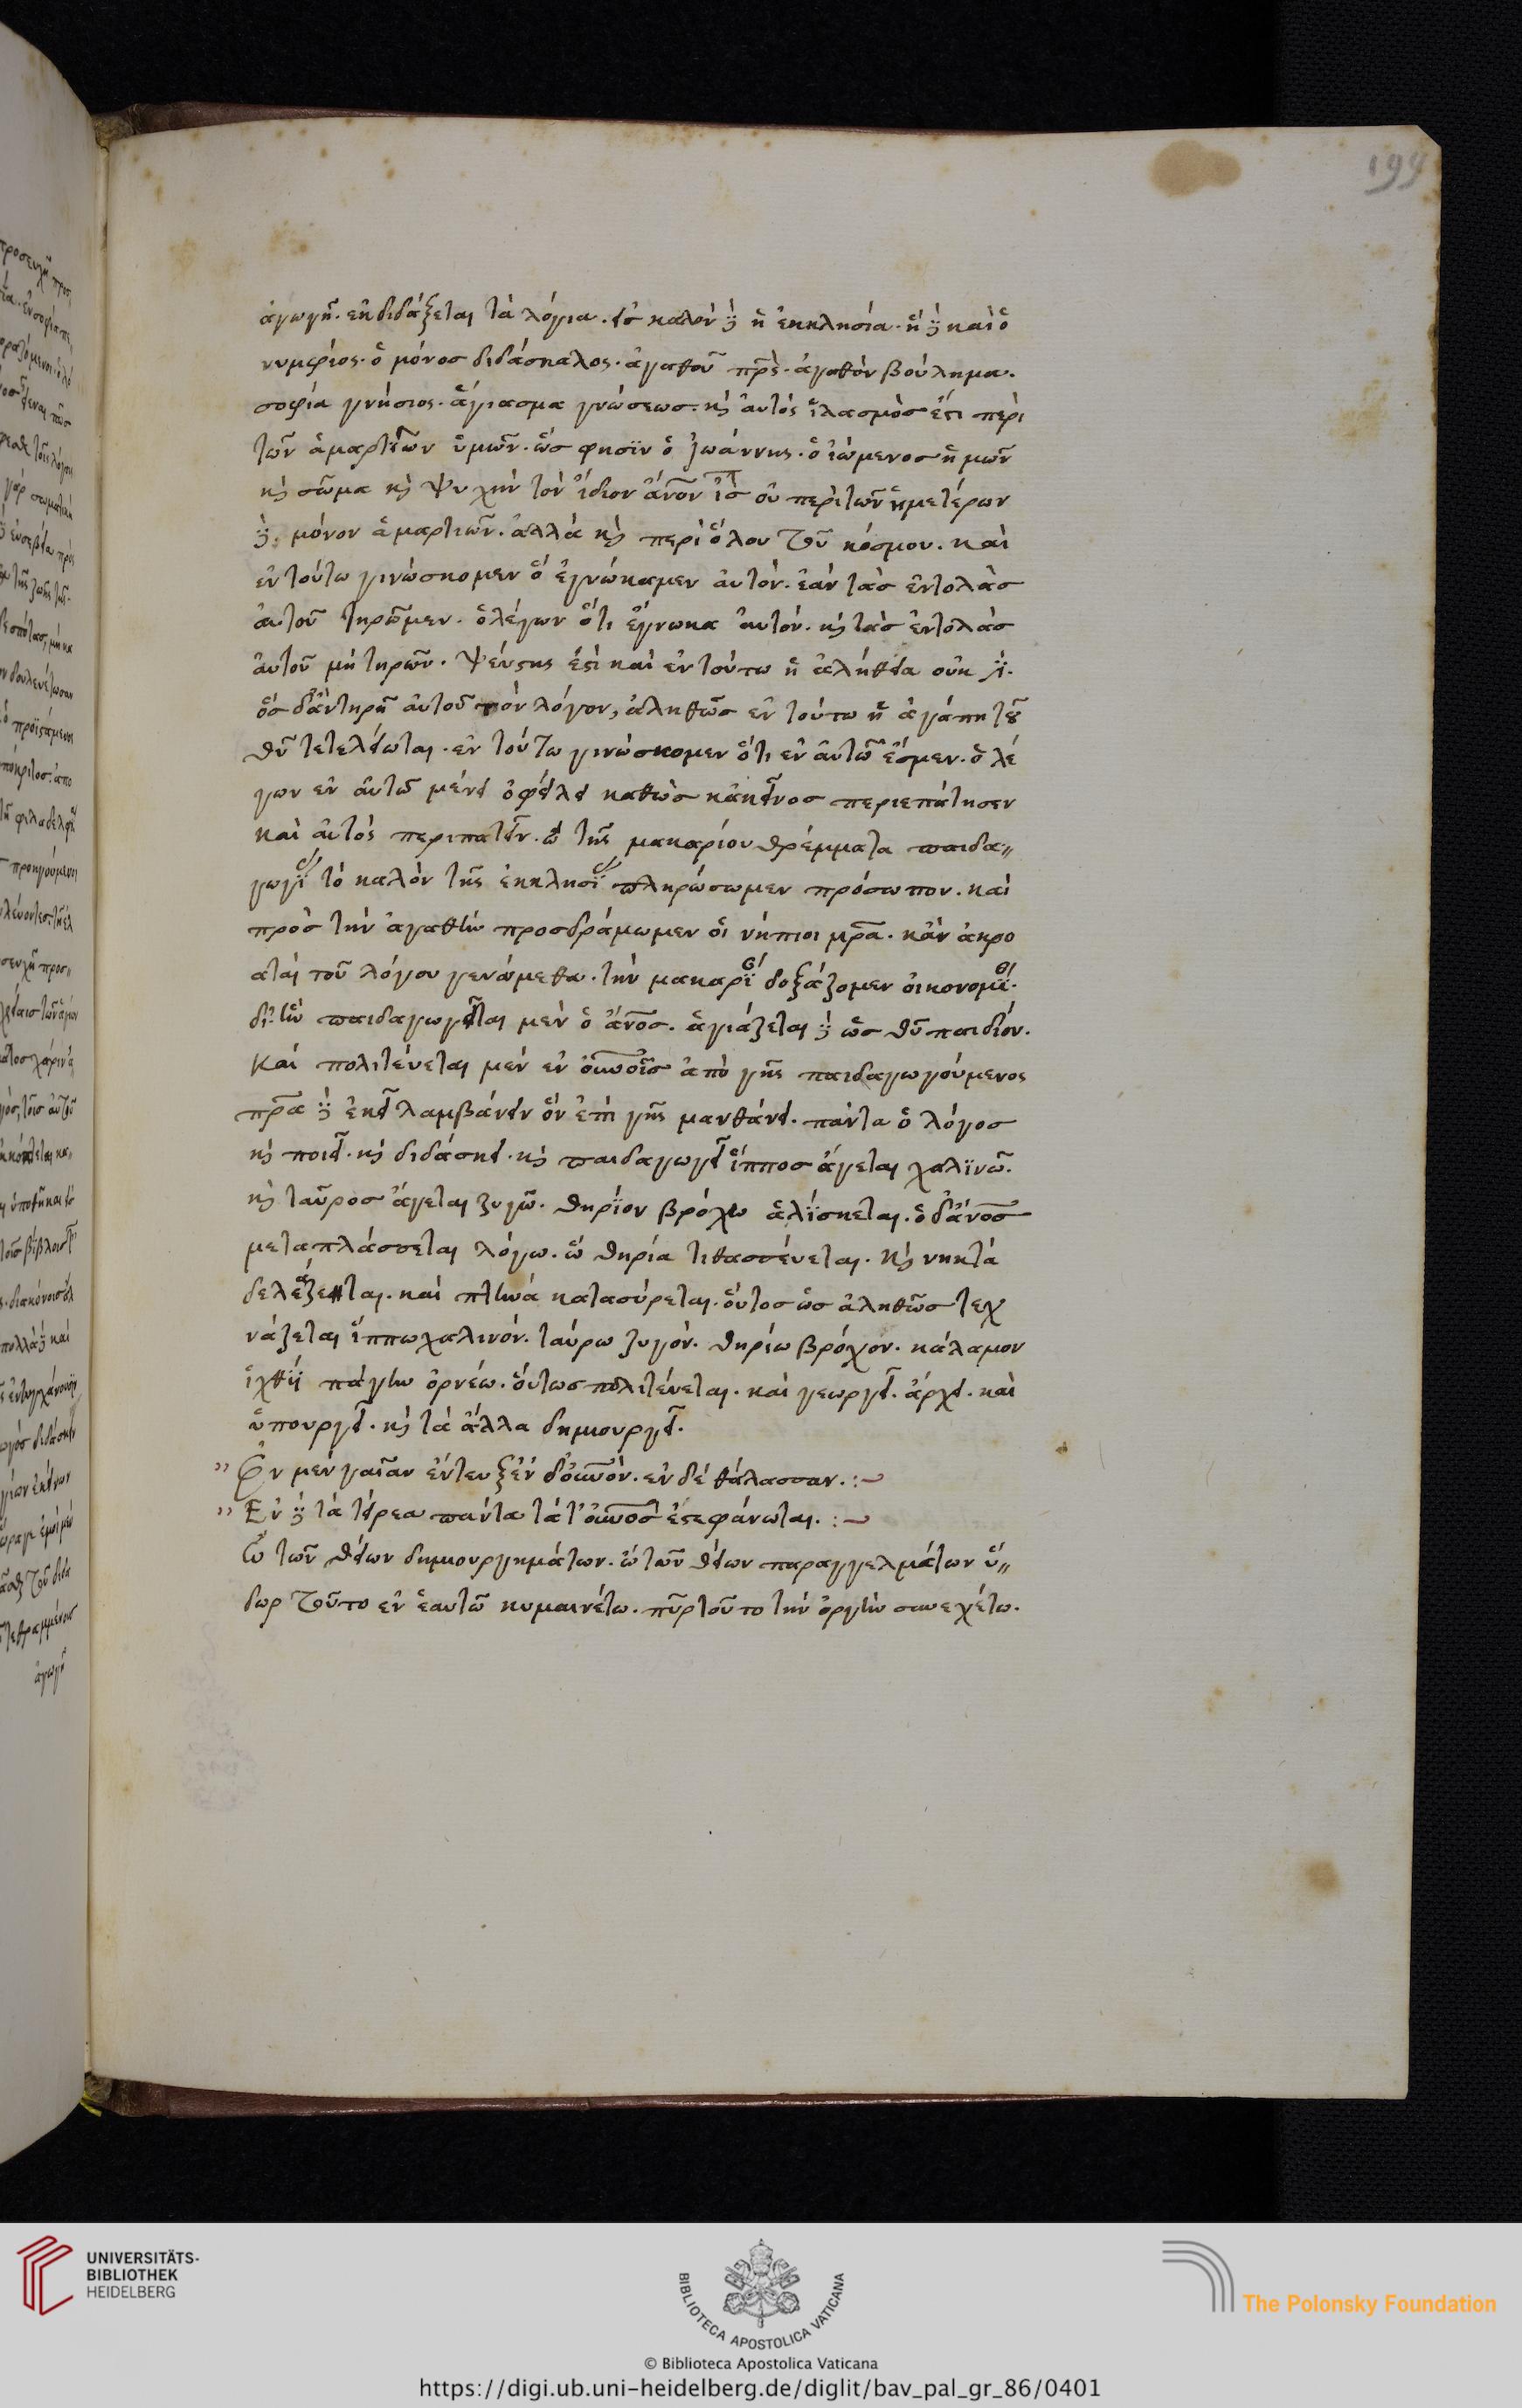 199
ἀγωγῆ. ἐκδιδάξεται τὰ λόγια. εἰς καλὸν δὲ ἡ ἐκκλησία. ἥδε καὶ ὁ
νυμφίος. ὁ μόνος διδάσκαλος. ἀγαθοῦ πρς. ἀγαθὸν βούλημα.
σοφία γνήσιος. ἁγίασμα γνώσεως. κς αὐτὸς ἱλασμός ἐστι περὶ
τῶν ἁμαρτιῶν ὑμῶν. ὥς φησϊν ὁ ἰωάννης. ὁ ἰώμενος ἡμῶν
κς σῶμα κς ψυχὴν τὸν ἴδιον ἄνον ις οὐ περὶ τῶν ἡμετέρων
δὲ μόνον ἁμαρτιῶν. ἀλλὰ κς περὶ ὅλου τοῦ κόσμου. καὶ
ἐν τούτω γινώσκομεν ὅ ἐγνώκαμεν αὐτόν. ἐὰν τὰς ἐντολὰς
αὐτοῦ τηρῶμεν. ὁ λέγων ὅτι ἔγνωκα αὐτόν. κς τὰς ἐντολὰς
αὐτοῦ μὴ τηρῶν. ψεύστης ἐστὶ καὶ ἐν τούτω ἡ ἀλήθεια οὐκ
ὃς δ' ἂν τηρῆ αὐτοῦ τὸν λόγον, ἀληθῶς ἐν τούτω ἡ ἀγάπη τοῦ
θῦ τετελείωται. ἐν τούτω γινώσκομεν ὅτι ἐν αὐτῶ ἐσμεν. ὁ λέ
γων ἐν αὐτῶ μένει ὀφείλει καθὼς κἀκεῖνος περιεπάτησεν
καὶ αὐτὸς περιπατεῖν. ὦ τῆς μακαρίου θρέμματα παιδα〃
γωγί τὸ καλὸν τῆς ἐκκλησί πληρώσωμεν πρόσωπον. καὶ
πρὸς τὴν ἀγαθὴν προσδράμωμεν οἱ νήπιοι μρα. κἂν ἀκρο
αταὶ τοῦ λόγου γενώμεθα. τὴν μακαρί δοξάζομεν οἰκονομί.
δι' ἣν παιδαγωγεῖται μὲν ὁ ἄνος. ἁγιάζεται δὲ ὡς θῦ παιδίον.
καὶ πολιτεύεται μὲν ἐν οὐνοῖς ἀπὸ γῆς παιδαγωγούμενος
πρα δὲ ἐκεῖ λαμβάνειν ὃν ἐπὶ γῆς μανθάνει. πάντα ὁ λόγος
κς ποιεῖ. κς διδάσκει. κς παιδαγωγεῖ ἵππος ἄγεται χαλϊνῶ.
κς ταῦρος ἄγεται ζυγῶ. θηρίον βρόχω ἁλίσκεται. ὁ δ' ἄνος
μεταπλάσσεται λόγω. ὧ θηρία τιθασσεύεται. κς νηκτὰ
δελεάζεται. καὶ πτηνὰ κατασύρεται. οὗτος ὡς ἀληθῶς τεχ
νάζεται ἵππω χαλινόν. ταύρω ζυγόν. θηρίω βρόχον. κάλαμον
ἰχθύϊ πάγην ὀρνέω. οὕτως πολιτεύεται. καὶ γεωργεῖ. ἄρχει. καὶ
ὑπουργεῖ. κς τὰ ἄλλα δημιουργεῖ.
〃 Ἐν μὲν γαῖαν ἔντευξεν δ' οὐνόν. ἐν δὲ θάλασσαν. :~
〃 Ἐν δὲ τὰ τείρεα πάντα τὰ τ' οὐνὸς ἐστεφάνωται. :~
Ὢ τῶν θείων δημιουργημάτων. ὢ τῶν θείων παραγγελμάτων ὕ〃
δωρ τοῦτο ἐν ἑαυτῶ κυμαινέτω. πῦρ τοῦτο τὴν ὀργὴν συνεχέτω.
UNIVERSITÄTS-
BIBLIOTHEK
HEIDELBERG
BIBLIOTECA APOSTOLICA VATICANA
The Polonsky Foundation
© Biblioteca Apostolica Vaticana
https://digi.ub.uni-heidelberg.de/diglit/bav_pal_gr_86/0401